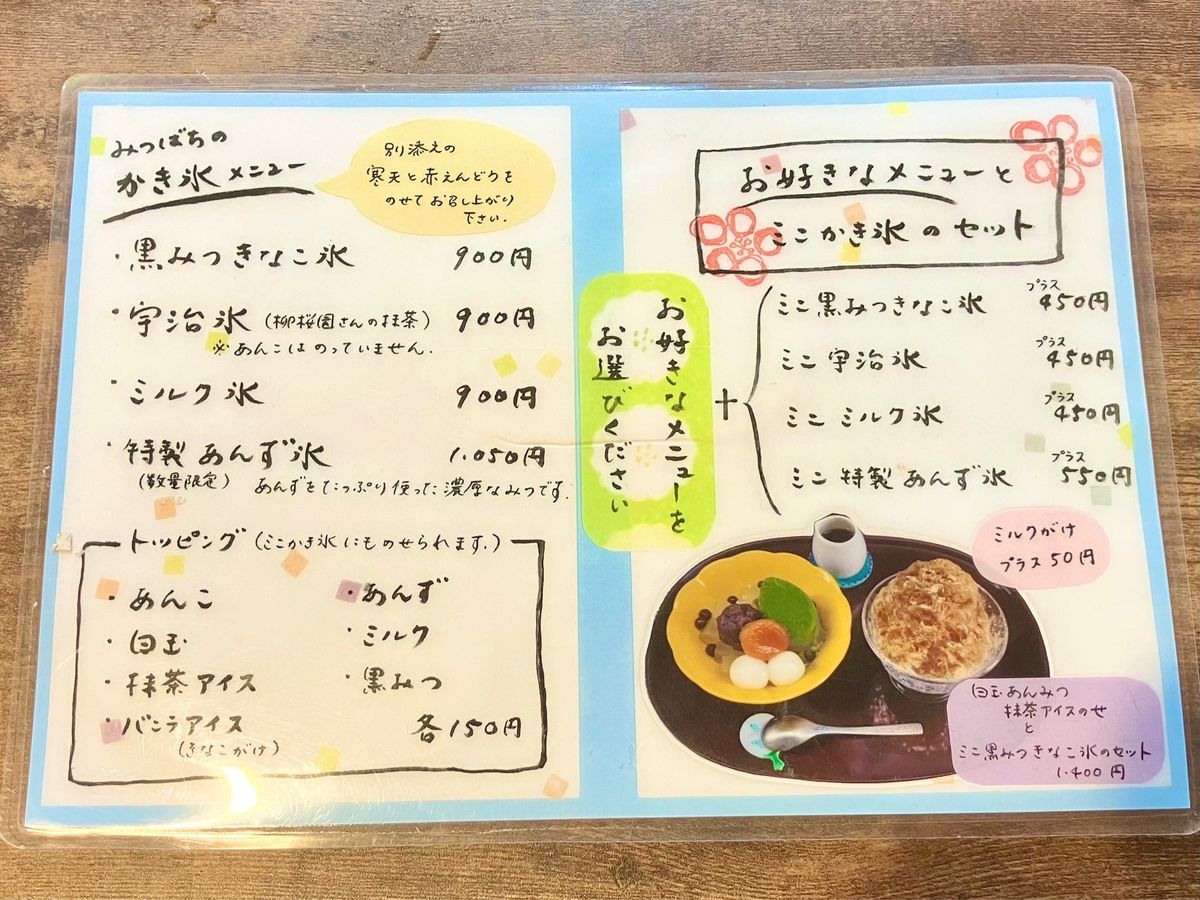 みつばちの
かき氷メニュー
別添えの
寒天と赤えんどうを
のせてお召し上がり
下さい.
・黒みつきなこ氷 900円
・宇治氷 (柳桜園さんの抹茶) 900円
※あんこはのっていません.
・ミルク氷 900円
・特製あんず氷 1.050円
(数量限定) あんずをたっぷり使った濃厚なみつです.
トッピング (ミニかき氷にものせられます.)
・あんこ
・白玉
・抹茶アイス
・バニラアイス
(きなこがけ)
・あんず
・ミルク
・黒みつ
各150円
お好きなメニューと
ミニかき氷のセット
お好きなメニューを
お選びください
+
ミニ黒みつきなこ氷 プラス450円
ミニ宇治氷 プラス450円
ミニミルク氷 プラス450円
ミニ特製あんず氷 プラス550円
ミルクがけ
プラス50円
白玉あんみつ
抹茶アイスのせ
と
ミニ黒みつきなこ氷のセット
1.400円